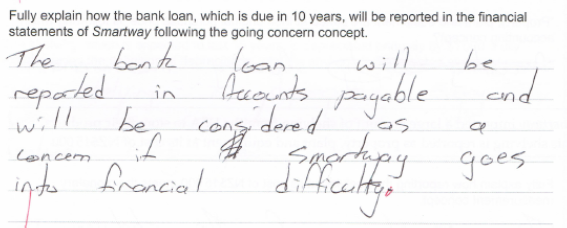 Fully explain how the bank loan, which is due in 10 years, will be reported in the financial
statements of Smartway following the going concern concept.
The bank loan will be
reported in Accounts payable and
will be considered as a
concern if Smartway goes
into financial difficulty.